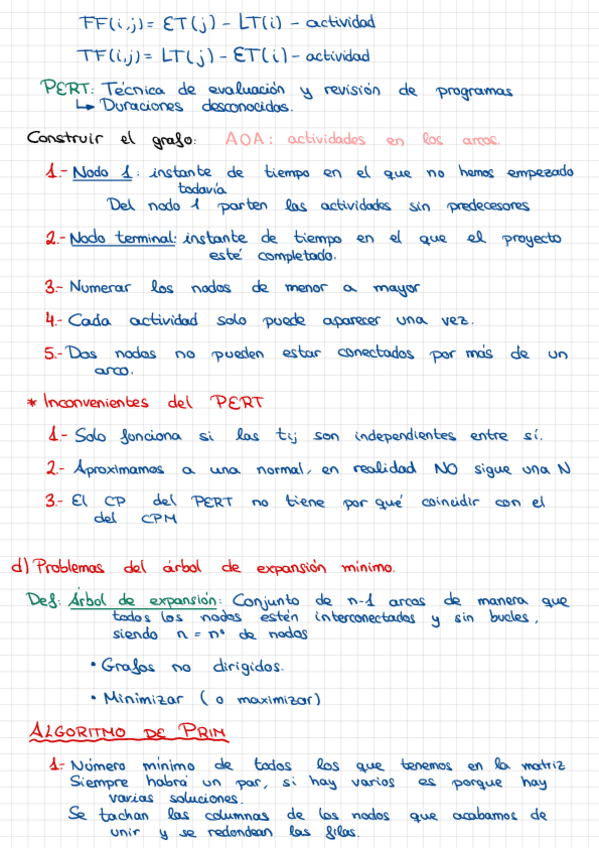 FF(i,j) = ET(j) - LT(i) - actividad
TF(i,j) = LT(j) - ET(i) - actividad
PERT: Técnica de evaluación y revisión de programas
↳ Duraciones desconocidas.
Construir el grafo: AOA: actividades en los arcos.
1.- Nodo 1: instante de tiempo en el que no hemos empezado
todavía
Del nodo 1 parten las actividades sin predecesores
2.- Nodo terminal: instante de tiempo en el que el proyecto
esté completado.
3.- Numerar los nodos de menor a mayor
4.- Cada actividad solo puede aparecer una vez.
5.- Dos nodos no pueden estar conectados por más de un
arco.
* Inconvenientes del PERT
1- Solo funciona si las tij son independientes entre sí.
2.- Aproximamos a una normal, en realidad NO sigue una N
3.- El CP del PERT no tiene por qué coincidir con el
del CPM
d) Problemas del árbol de expansión mínimo.
Def: Árbol de expansión: Conjunto de n-1 arcos de manera que
todos los nodos estén interconectados y sin bucles,
siendo n = nº de nodos
• Grafos no dirigidos.
• Minimizar (o maximizar)
ALGORITMO DE PRIM
1- Número mínimo de todos los que tenemos en la matriz
Siempre habrá un par, si hay varios es porque hay
varias soluciones.
Se tachan las columnas de los nodos que acabamos de
unir y se redondean las filas.